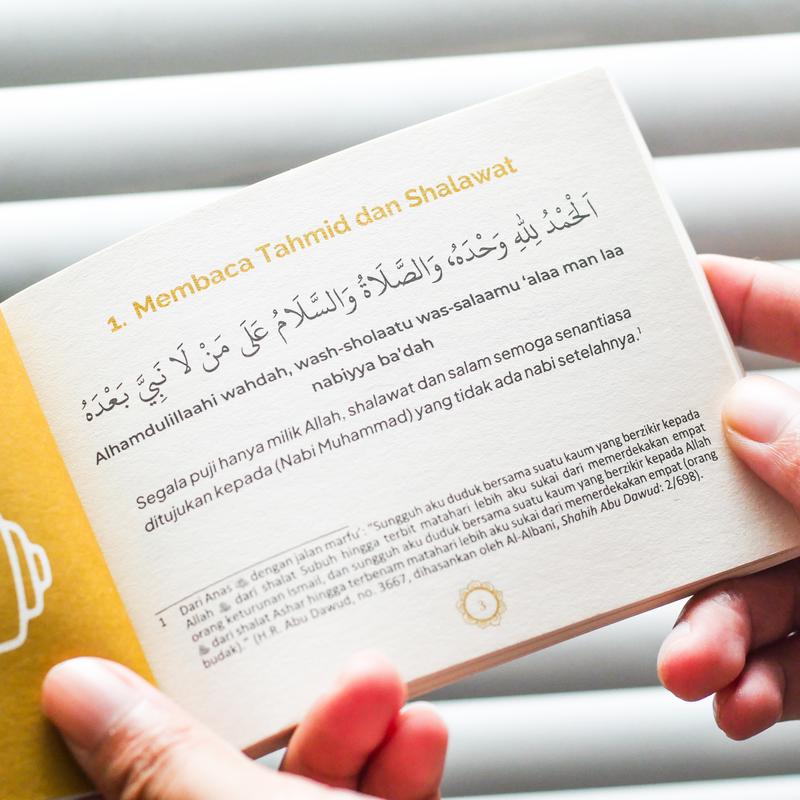 1. Membaca Tahmid dan Shalawat
اَلْحَمْدُ لِلّٰهِ وَحْدَهُ، وَالصَّلَاةُ وَالسَّلَامُ عَلَى مَنْ لَا نَبِيَّ بَعْدَهُ
Alhamdulillaahi wahdah, wash-sholaatu was-salaamu ‘alaa man laa
nabiyya ba’dah
Segala puji hanya milik Allah, shalawat dan salam semoga senantiasa
ditujukan kepada (Nabi Muhammad) yang tidak ada nabi setelahnya.¹
1 Dari Anas dengan jalan marfu’: “Sungguh aku duduk bersama suatu kaum yang berzikir kepada
Allah ﷻ dari shalat Subuh hingga terbit matahari lebih aku sukai dari memerdekakan empat
orang keturunan Ismail, dan sungguh aku duduk bersama suatu kaum yang berzikir kepada Allah
ﷻ dari shalat Ashar hingga terbenam matahari lebih aku sukai dari memerdekan empat (orang
budak).” (H.R. Abu Dawud, no. 3667, dihasankan oleh Al-Albani, Shahih Abu Dawud: 2/698).
3